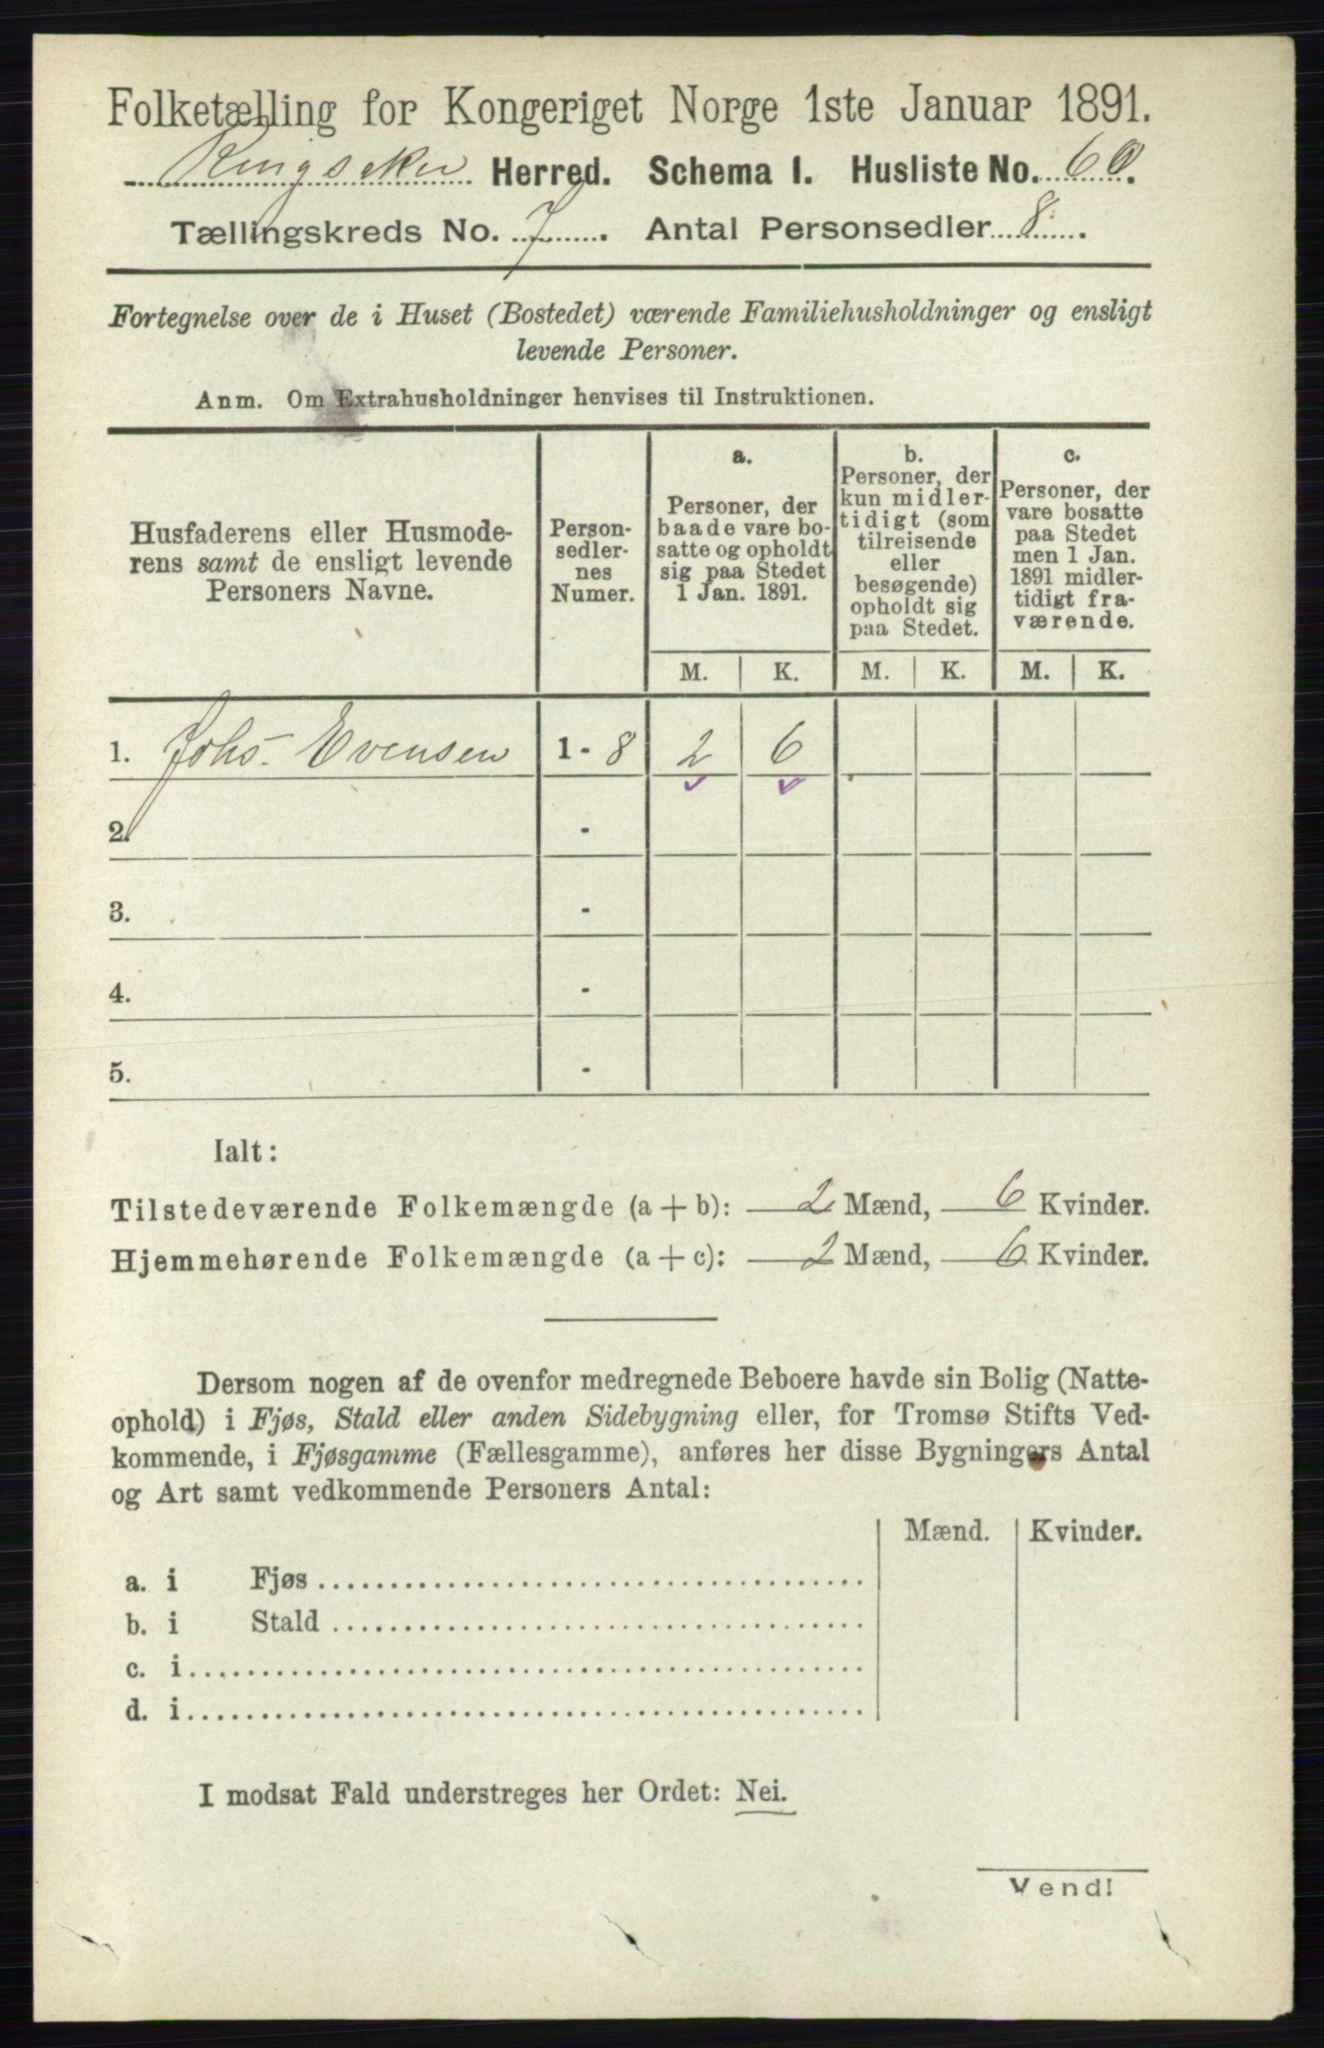 Folketælling for Kongeriget Norge 1ste Januar 1891.
Ringsaker Herred. Schema I. Husliste No. 60.
Tællingskreds No. 7. Antal Personsedler 8.
Fortegnelse over de i Huset (Bostedet) værende Familiehusholdninger og ensligt
levende Personer.
Anm. Om Extrahusholdninger henvises til Instruktionen.
Husfaderens eller Husmode-
rens samt de ensligt levende
Personers Navne.
Person-
sedler-
nes
Numer.
a.
Personer, der
baade vare bo-
satte og opholdt
sig paa Stedet
1 Jan. 1891.
b.
Personer, der
kun midler-
tidigt (som
tilreisende
eller
besøgende)
opholdt sig
paa Stedet.
c.
Personer, der
vare bosatte
paa Stedet
men 1 Jan.
1891 midler-
tidigt fra-
værende.
M. K. M. K. M. K.
1. Johs. Evensen 1 - 8 2 6
2. -
3. -
4. -
5. -
Ialt:
Tilstedeværende Folkemængde (a + b): 2 Mænd, 6 Kvinder.
Hjemmehørende Folkemængde (a + c): 2 Mænd, 6 Kvinder.
Dersom nogen af de ovenfor medregnede Beboere havde sin Bolig (Natte-
ophold) i Fjøs, Stald eller anden Sidebygning eller, for Tromsø Stifts Ved-
kommende, i Fjøsgamme (Fællesgamme), anføres her disse Bygningers Antal
og Art samt vedkommende Personers Antal:
Mænd. Kvinder.
a. i Fjøs
b. i Stald
c. i
d. i
I modsat Fald understreges her Ordet: Nei.
Vend!